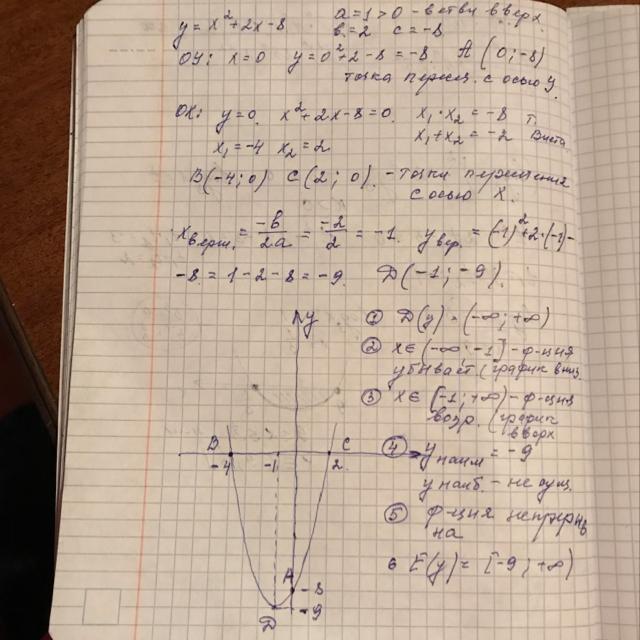 y = x² + 2x - 8   a = 1 > 0 - ветви вверх.
в = 2   c = -8
OY: x = 0   y = 0² + 2 - 8 = -8.   A (0; -8)
точка перес. с осью y.
OX: y = 0.   x² + 2x - 8 = 0.   x₁ · x₂ = -8   т.
x₁ = -4   x₂ = 2   x₁ + x₂ = -2   Виета
B(-4; 0)   C(2; 0). - точки пересечения
с осью X.
x верш. = -b/2a = -2/2 = -1.   y вер. = (-1)² + 2·(-1) -
-8 = 1 - 2 - 8 = -9.   D(-1; -9).
y
① D(y) = (-∞; +∞)
② x ∈ (-∞; -1] - ф-ция
убывает (график вниз
③ x ∈ [-1; +∞) - ф-ция
возр. (график
вверх
B   C
-4   -1   2
④ y наим = -9
y наиб. - не сущ.
⑤ ф-ция непрерыв
на
6 E(y) = [-9; +∞)
A
-8
-9
D